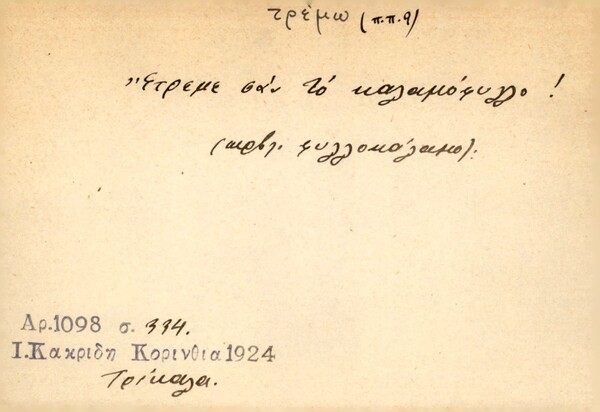 τρέμω (π.π. 9)
"Έτρεμε σάν τό καλαμόφυλλο!
(πρβλ. φυλλοκάλαμο).
Αρ.1098 σ. 334.
Ι.Κακριδη Κορινθια 1924
Τρίκαλα.